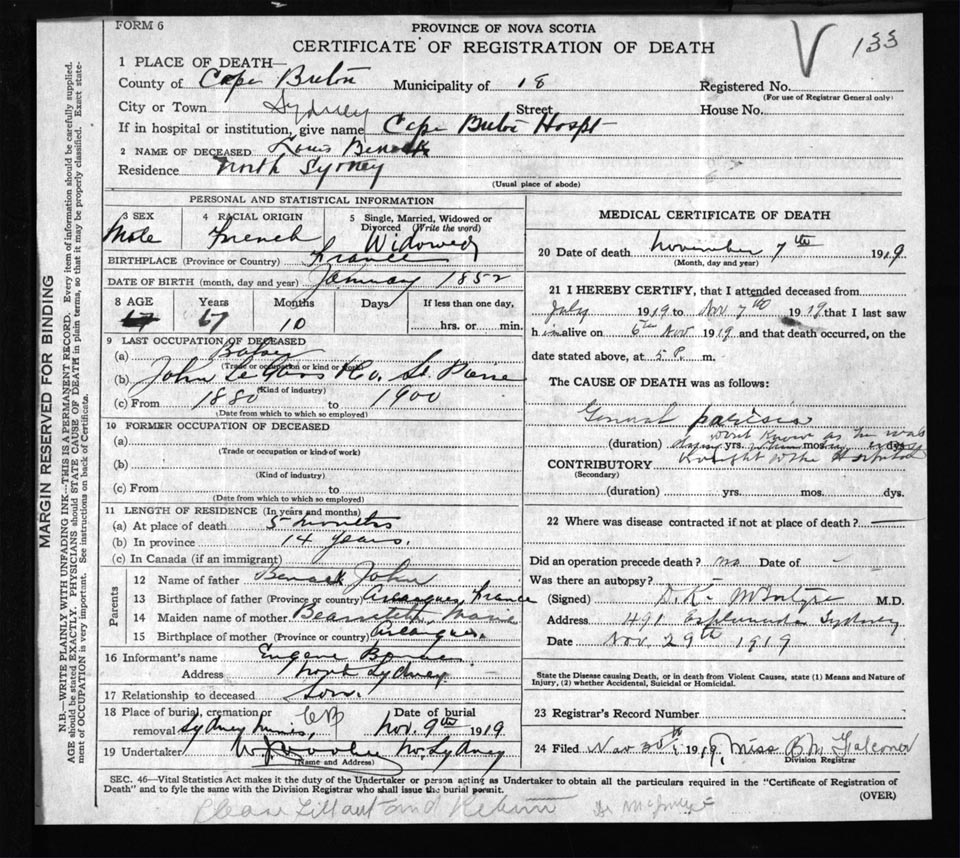 FORM 6
PROVINCE OF NOVA SCOTIA
133
CERTIFICATE OF REGISTRATION OF DEATH
1 PLACE OF DEATH—
County of Cape Breton Municipality of 18 Registered No.
(For use of Registrar General only)
City or Town Sydney Street House No.
If in hospital or institution, give name Cape Breton Hospt
2 NAME OF DECEASED Louis
Residence North Sydney
(Usual place of abode)
PERSONAL AND STATISTICAL INFORMATION
3 SEX Male
4 RACIAL ORIGIN French
5 Single, Married, Widowed or Divorced (Write the word) Widowed
BIRTHPLACE (Province or Country) France
DATE OF BIRTH (month, day and year) January 1852
8 AGE Years Months Days If less than one day,
67 67 10 hrs. or min.
9 LAST OCCUPATION OF DECEASED
(a) Baker
(Trade or occupation or kind of work)
(b) John Co. St. Pierre
(Kind of industry)
(c) From 1880 to 1900
(Date from which to which so employed)
10 FORMER OCCUPATION OF DECEASED
(a)
(Trade or occupation or kind of work)
(b)
(Kind of industry)
(c) From to
(Date from which to which so employed)
11 LENGTH OF RESIDENCE (In years and months)
(a) At place of death 5 months
(b) In province 14 years.
(c) In Canada (if an immigrant)
Parents
12 Name of father John
13 Birthplace of father (Province or country) Arcangues, France
14 Maiden name of mother
15 Birthplace of mother (Province or country) Arcangues.
16 Informant's name Eugene
Address North Sydney
17 Relationship to deceased Son.
18 Place of burial, cremation or removal Sydney Mines, CB
Date of burial Nov. 9th 1919
19 Undertaker No. Sydney
(Name and Address)
MEDICAL CERTIFICATE OF DEATH
20 Date of death November 7th 1919
(Month, day and year)
21 I HEREBY CERTIFY, that I attended deceased from
July 1919 to Nov 7th 1919 that I last saw
him alive on 6th Nov 1919 and that death occurred, on
date stated above, at 5 P. m.
The CAUSE OF DEATH was as follows:
General paresis
(duration) yrs. mos. dys.
dont know as he was
brought to the Hospital
CONTRIBUTORY
(Secondary)
(duration) yrs. mos. dys.
22 Where was disease contracted if not at place of death?
Did an operation precede death? no Date of
Was there an autopsy?
(Signed) D. K. McIntyre M.D.
Address 491 Esplanade Sydney
Date Nov. 29th 1919
State the Disease causing Death, or in death from Violent Causes, state (1) Means and Nature of
Injury, (2) whether Accidental, Suicidal or Homicidal.
23 Registrar's Record Number
24 Filed Nov 30th 1919, Miss B M Falconer
Division Registrar
SEC. 46—Vital Statistics Act makes it the duty of the Undertaker or person acting as Undertaker to obtain all the particulars required in the "Certificate of Registration of
Death" and to fyle the same with the Division Registrar who shall issue the burial permit.
(OVER)
Please fill out and Return Dr McIntyre
MARGIN RESERVED FOR BINDING
N.B.—WRITE PLAINLY WITH UNFADING INK—THIS IS A PERMANENT RECORD. Every item of information should be carefully supplied.
AGE should be stated EXACTLY. PHYSICIANS should STATE CAUSE OF DEATH in plain terms, so that it may be properly classified. Exact state-
ment of OCCUPATION is very important. See instructions on back of Certificate.